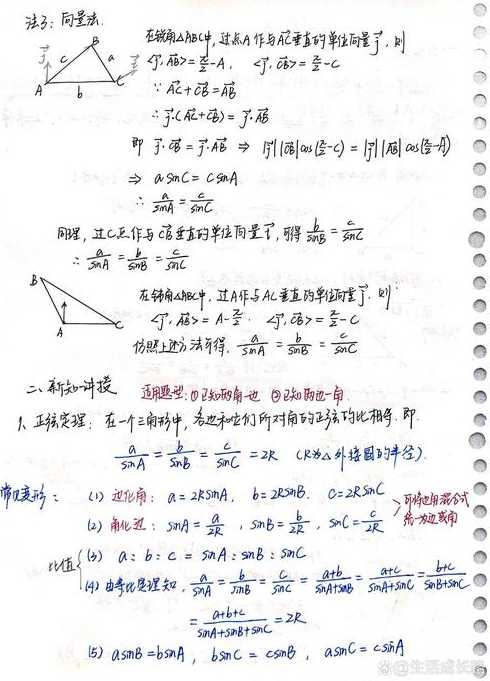 法3：向量法.
在锐角△ABC中，过点A作与AC垂直的单位向量j，则
<j, AB> = π/2 - A， <j, CB> = π/2 - C
∵ AC + CB = AB
∴ j·(AC + CB) = j·AB
即 j·CB = j·AB ⇒ |j||CB|cos(π/2 - C) = |j||AB|cos(π/2 - A)
⇒ a sinC = c sinA
∴ a/sinA = c/sinC
同理，过C点作与CB垂直的单位向量j，可得 b/sinB = c/sinC
∴ a/sinA = b/sinB = c/sinC
B
c a
A b C
在钝角△ABC中，过A作与AC垂直的单位向量j. 则
<j, AB> = A - π/2， <j, CB> = π/2 - C
仿照上述方法可得. a/sinA = b/sinB = c/sinC
B
A C
二、新知讲授 适用题型：①已知两角一边 ②已知两边一角.
1、正弦定理：在一个三角形中，各边和它们所对角的正弦的比相等. 即
a/sinA = b/sinB = c/sinC = 2R （R为△外接圆的半径）.
常见变形：(1) 边化角：a = 2RsinA， b = 2RsinB， c = 2RsinC
(2) 角化边：sinA = a/2R，sinB = b/2R，sinC = c/2R
统一为边或角
比值 (3) a : b : c = sinA : sinB : sinC
(4) 由等比定理知，a/sinA = b/sinB = c/sinC = a+b/sinA+sinB = a+c/sinA+sinC = b+c/sinB+sinC
= a+b+c/sinA+sinB+sinC = 2R
(5) asinB = bsinA， bsinC = csinB， asinC = csinA
@生活成长